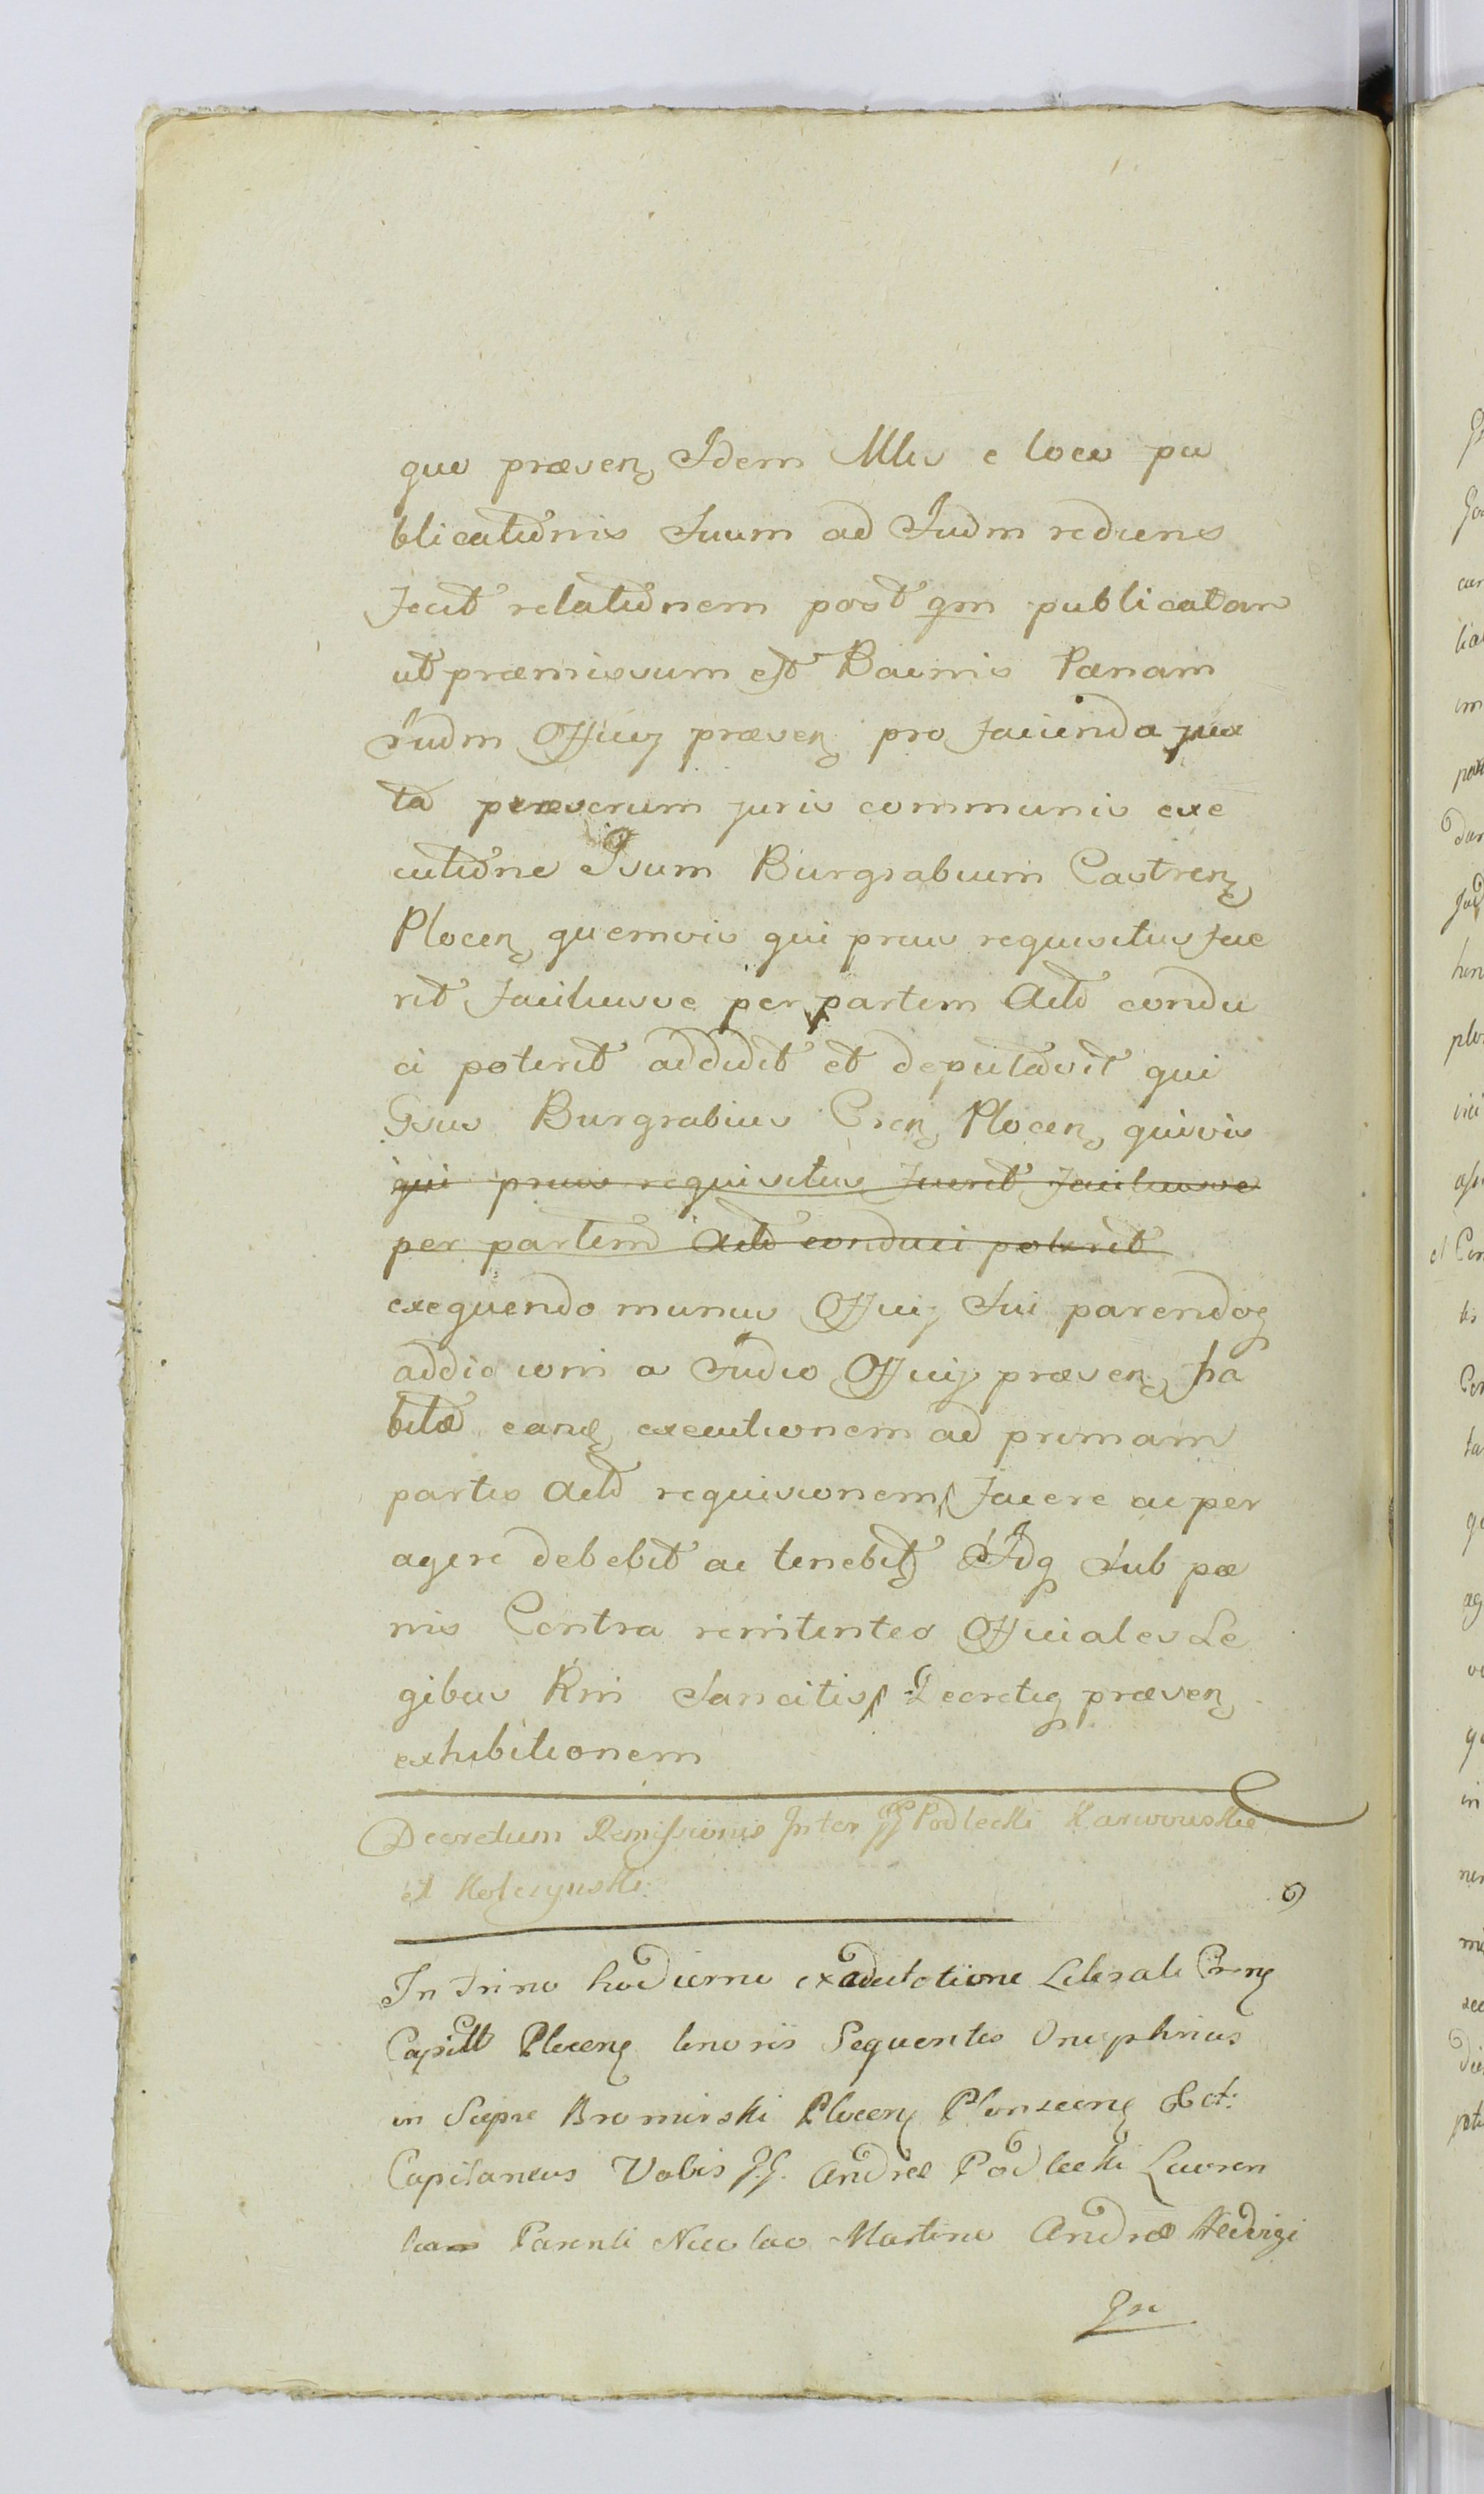 quo præsen Idem Mlis e loco pu
blicationis Suum ad Judm rediens
fecit relationem post qm publicatam
ut præmissum est Bannis Pænam
Judm Officy præsen pro facienda jux
ta præscrum juris communis exe
cutione Gsum Burgrabium Castren
Plocen quemvis qui prius requisitus fue
rit faciliusve per partem Act condu
ci poterit addidit et deputavit qui
Gsus Burgrabius Cren Plocen quivis
qui prius requisitus fuerit faciliusve
per partem Act conduci poterit
exequendo munus Officy Sui parendoq
addicioni a Judio Officy præsen ha
bitæ eand executionem ad primam
partis Act requisicionem facere ac per
agere debebit ac tenebit Idq Sub pæ
nis Contra renitentes Officiales Le
gibus Rni Sancitis Decretiq præsen
exhibitionem
Decretum Remissionis Inter GG Podlecki Karwowskie
et Kolczynski
In Trino hodierno ex Liberali Cren
Capitli Plocen tenoris Sequentis Onuphrius
in Siepre Bromirski Plocen Plonscen &ct:
Capitaneus Vobis G.G. Andreæ Podlecki Lauren
Parenti Nicolao Martino Andreæ Hedvigi
Gn